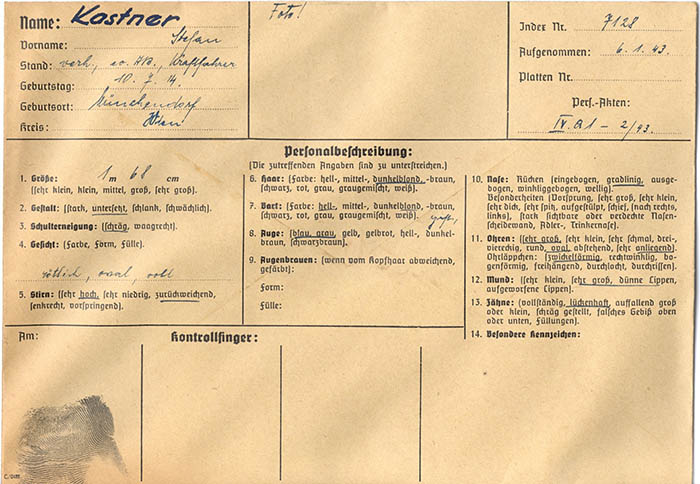 Name: Kastner
Vorname: Stefan
Stand: verh., ev. AB., Kraftfahrer
Geburtstag: 10. 7. 14.
Geburtsort: Münchendorf
Kreis: Wien
Foto!
Index Nr. 7128
Aufgenommen: 6. 1. 43.
Platten Nr.
Pers.-Akten:
IV A 1 - 2/43.
Personalbeschreibung:
(Die zutreffenden Angaben sind zu unterstreichen.)
1. Größe: 1 m 68 cm
(sehr klein, klein, mittel, groß, sehr groß).
2. Gestalt: (stark, untersetzt, schlank, schwächlich).
3. Schulterneigung: (schräg, waagrecht).
4. Gesicht: (Farbe, Form, Fülle).
rötlich, oval, voll
5. Stirn: (sehr hoch, sehr niedrig, zurückweichend,
senkrecht, vorspringend).
6. Haar: (Farbe: hell-, mittel-, dunkelblond, -braun,
schwarz, rot, grau, graugemischt, weiß).
7. Bart: (Farbe: hell-, mittel-, dunkelblond, -braun,
schwarz, rot, grau, graugemischt, weiß).
8. Auge: (blau, grau, gelb, gelbrot, hell-, dunkel-
braun, schwarzbraun).
9. Augenbrauen: (wenn vom Kopfhaar abweichend,
gefärbt):
Form:
Fülle:
10. Nase: Rücken (eingebogen, gradlinig, ausge-
bogen, winkliggebogen, wellig).
Besonderheiten (Vorsprung, sehr groß, sehr klein,
sehr dick, sehr spitz, aufgestülpt, schief, (nach rechts,
links), stark sichtbare oder verdeckte Nasen-
scheidewand, Adler-, Trinkernase).
11. Ohren: (sehr groß, sehr klein, sehr schmal, drei-
viereckig, rund, oval, abstehend, sehr anliegend).
Ohrläppchen: (zwickelförmig, rechtwinklig, bo-
genförmig, freihängend, durchlocht, durchrissen).
12. Mund: (sehr klein, sehr groß, dünne Lippen,
aufgeworfene Lippen).
13. Zähne: (vollständig, lückenhaft, auffallend groß
oder klein, schräg gestellt, falsches Gebiß oben
oder unten, Füllungen).
14. Besondere Kennzeichen:
Am:
Kontrollfinger: